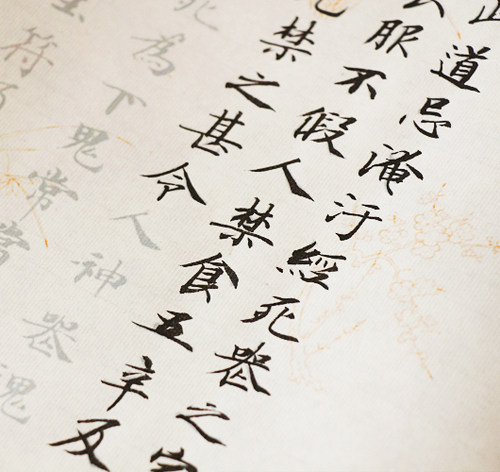 道忌淹汙經死喪之家
服不假人禁食五辛及
禁之甚令人神喪魂
死為下鬼常當
符